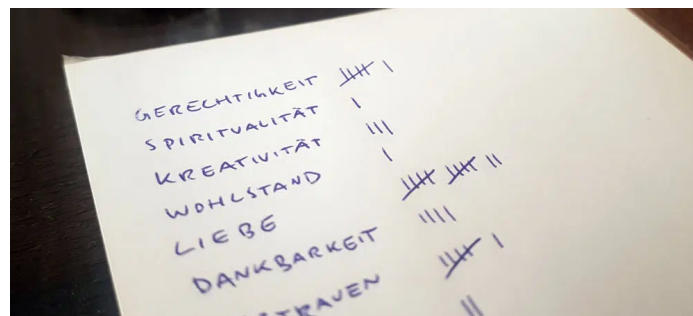 GERECHTIGKEIT 卌 |
SPIRITUALITÄT |
KREATIVITÄT |||
WOHLSTAND |
LIEBE 卌 卌 ||
DANKBARKEIT ||||
TRAUEN 卌 |
||